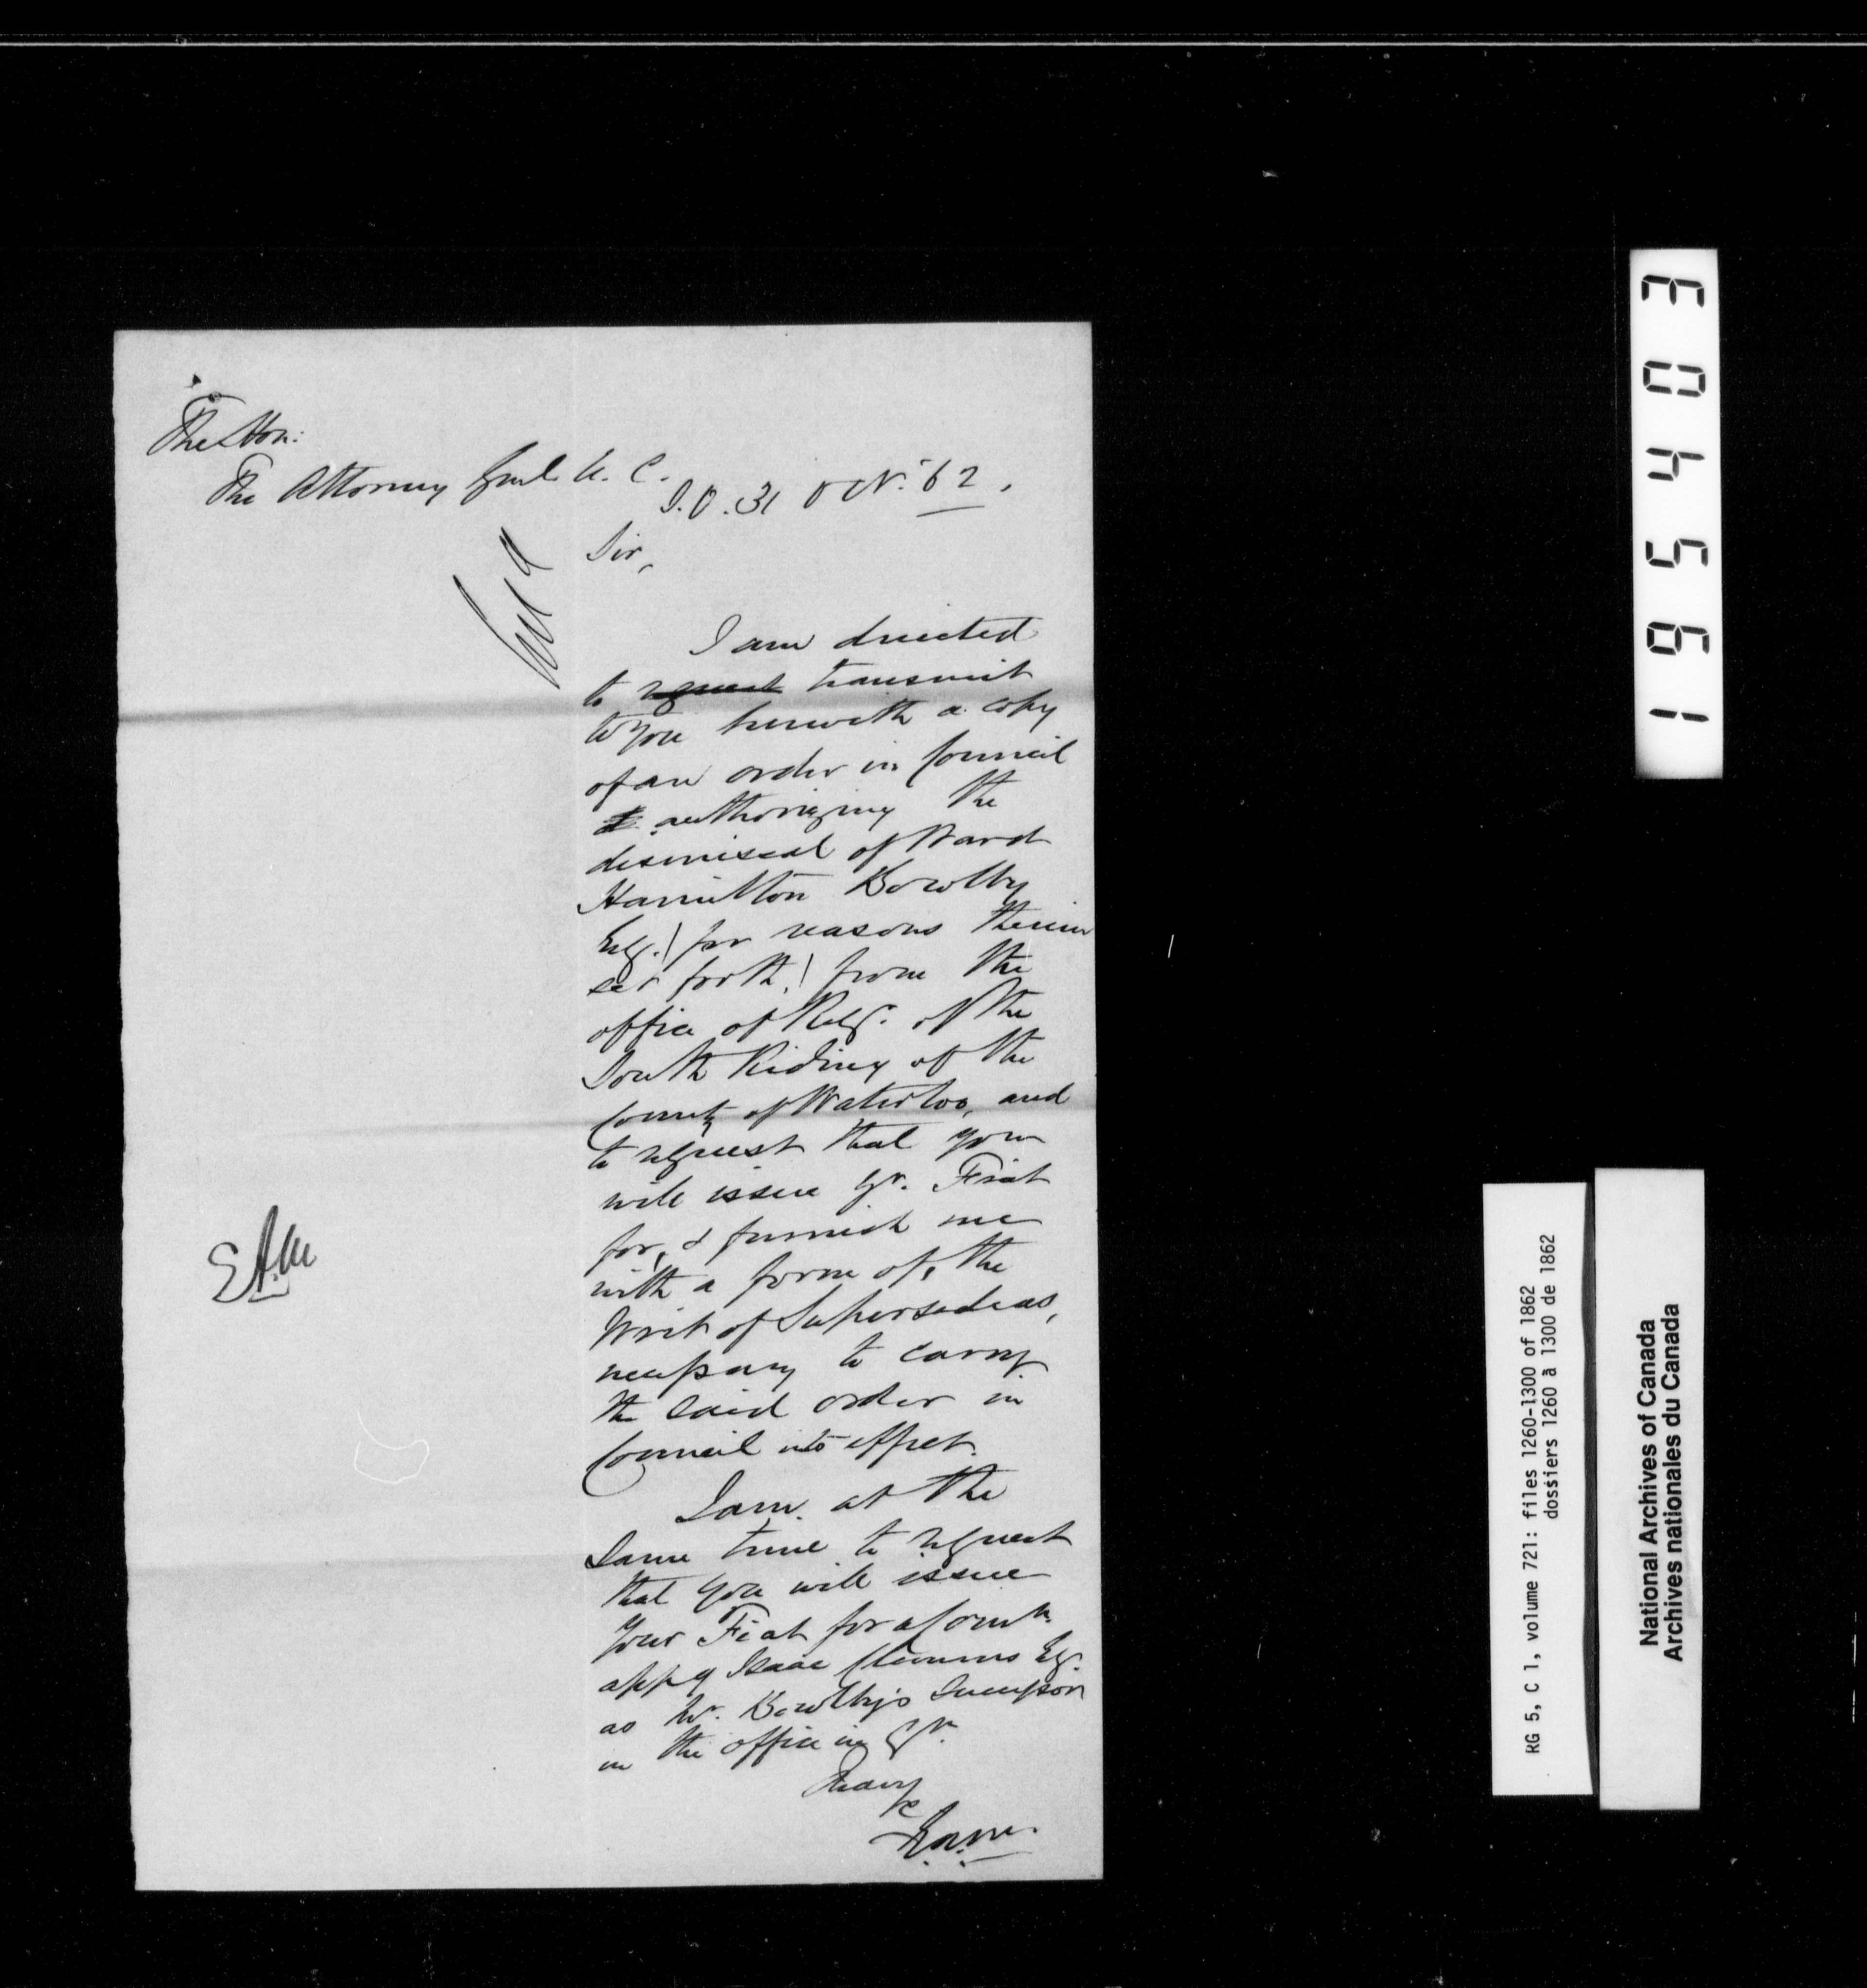 The Hon:
The Attorney Genl. U. C.
S.O. 31 Oct. '62.
Sir,
I am directed
to request transmit
to you herewith a copy
of an order in Council
authorizing the
dismissal of Ward
Hamilton Bowlby
Esq. / for reasons therein
set forth, / from the
office of Regr. of the
South Riding of the
County of Waterloo, and
to request that you
will issue yr. Fiat
for, & furnish me
with a form of, the
Writ of Supersedeas,
necessary to carry
the said order in
Council into effect.
I am at the
same time to request
that you will issue
your Fiat for a Comn.
appg Isaac Clemens Esq.
as Mr. Bowlby's Successor
in the office in Qn.
I have
&c
E.A.M.
E.A.M
196 5403
RG 5, C 1, volume 721: files 1260-1300 of 1862
dossiers 1260 à 1300 de 1862
National Archives of Canada
Archives nationales du Canada